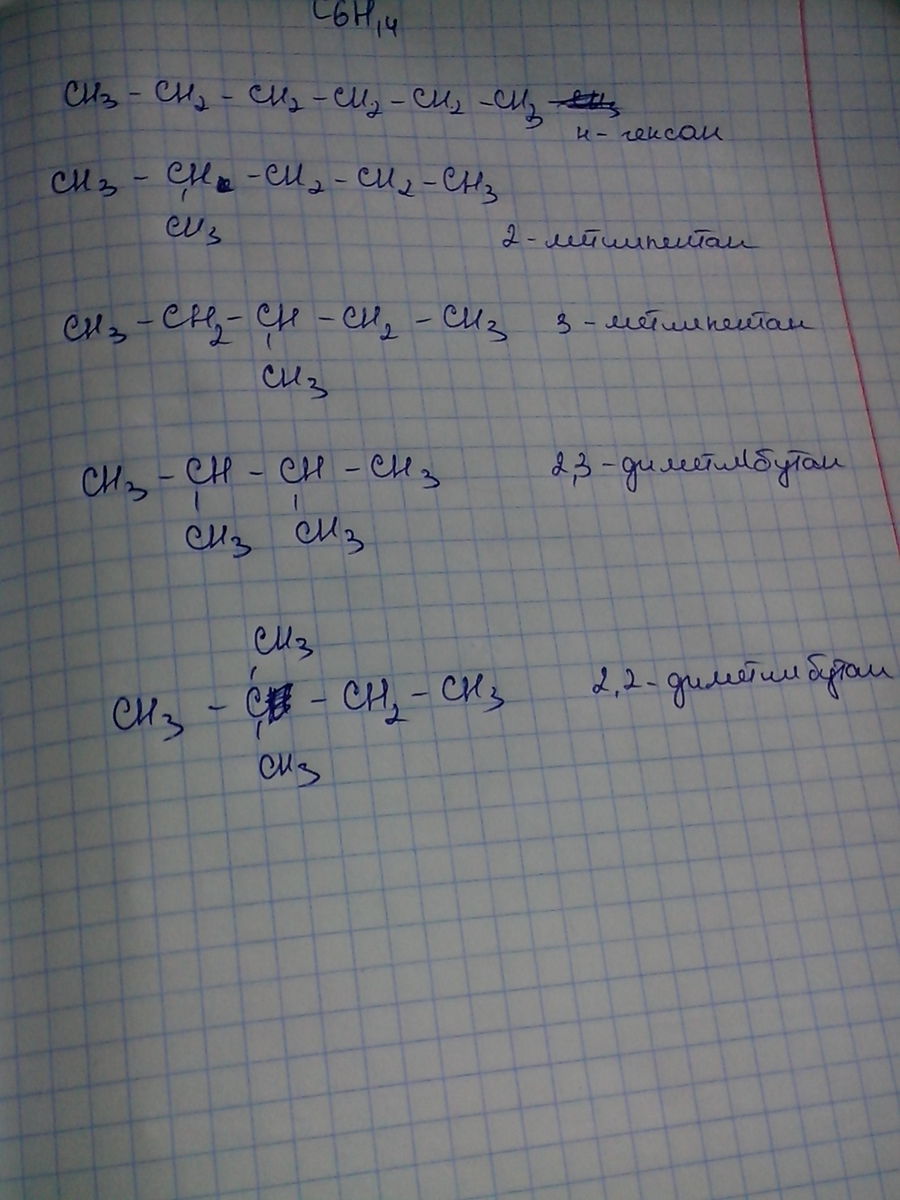 C6H14
CH3 - CH2 - CH2 - CH2 - CH2 - CH3
н - гексан
CH3 - CH - CH2 - CH2 - CH3
CH3
2 - метилпентан
CH3 - CH2 - CH - CH2 - CH3 3 - метилпентан
CH3
CH3 - CH - CH - CH3 2,3 - диметилбутан
CH3 CH3
CH3
CH3 - C - CH2 - CH3 2,2 - диметилбутан
CH3